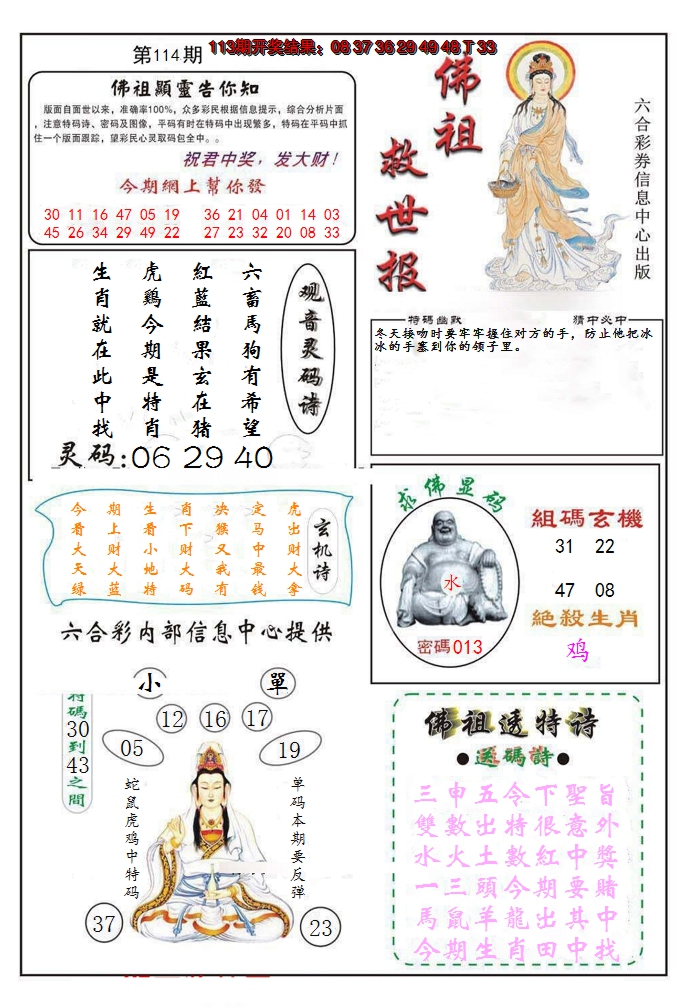 第114期
113期开奖结果：08 37 36 29 49 48 T 33
佛祖顯靈告你知
版面自面世以来，准确率100%，众多彩民根据信息提示，综合分析片面
，注意特码诗、密码及图像，平码有时在特码中出现繁多，特码在平码中抓
住一个版面跟踪，望彩民心灵取码包全中。。
祝君中奖，发大财！
今期網上幫你發
30 11 16 47 05 19 36 21 04 01 14 03
45 26 34 29 49 22 27 23 32 20 08 33
佛祖救世报
六合彩券信息中心出版
观音灵码诗
六畜馬狗有希望
紅藍結果玄在猪
虎鷄今期是特肖
生肖就在此中找
灵码:06 29 40
特码幽默
猜中必中
冬天接吻时要牢牢握住对方的手，防止他把冰
冰的手塞到你的领子里。
玄机诗
虎出财大拿
定马中最钱
决猴又我有
肖下财大码
生看小地特
期上财大蓝
今看大天绿
六合彩内部信息中心提供
求佛显码
水
密碼013
組碼玄機
31 22
47 08
絕殺生肖
鸡
小
單
特碼30到43之間
12 16 17
05 19
蛇鼠虎鸡中特码
单码本期要反弹
37 23
佛祖透特诗
●送碼詩●
三申五令下聖旨
雙數出特很意外
水火土數紅中獎
一三頭今期要賭
馬鼠羊龍出其中
今期生肖田中找